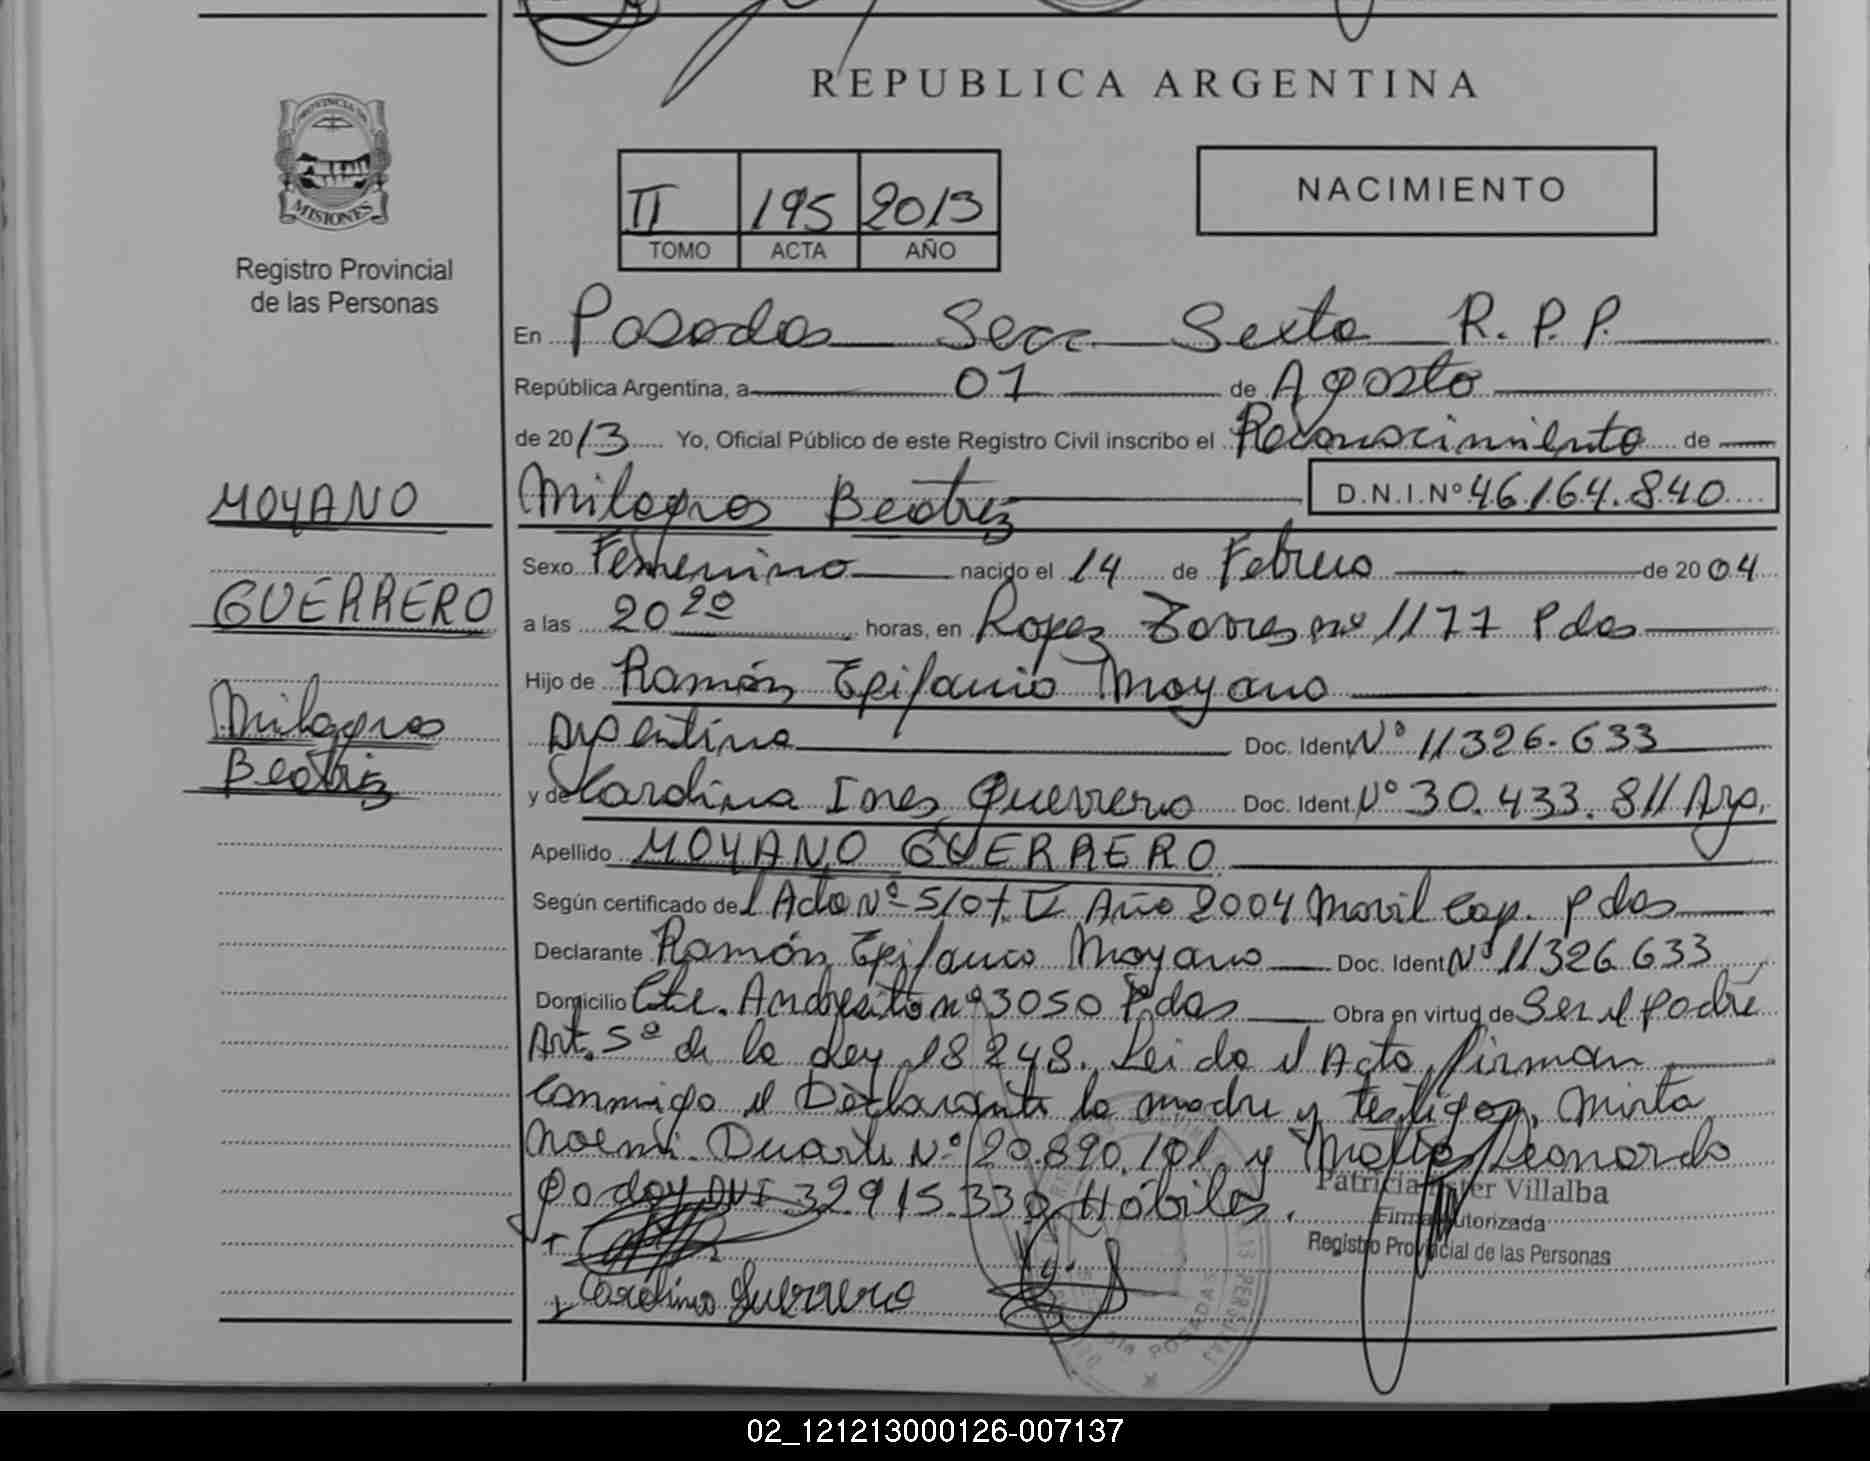 REPUBLICA ARGENTINA
PROVINCIA DE
MISIONES
Registro Provincial
de las Personas
II 195 2013
TOMO ACTA AÑO
NACIMIENTO
En Posadas Secc. Sexta R.P.P.
República Argentina, a 01 de Agosto
de 2013 Yo, Oficial Público de este Registro Civil inscribo el Reconocimiento de
MOYANO
GUERRERO
Milagros
Beatriz
Milagros Beatriz D.N.I. Nº 46.164.840
Sexo Femenino nacido el 14 de Febrero de 2004
a las 20 20 horas, en Lopez Torres nº 1177 Pdas
Hijo de Ramón Epifanio Moyano
Argentina Doc. Ident. Nº 11326.633
y de Carolina Ines Guerrero Doc. Ident. Nº 30.433.811 Arg.
Apellido MOYANO GUERRERO
Según certificado del Acta Nº 510 Año 2004 Movil Cap. Pdas
Declarante Ramón Epifanio Moyano Doc. Ident. Nº 11326.633
Domicilio Cte. Andresito nº 3050 Pdas Obra en virtud de Ser el padre
Art. 5º de la Ley 18248. Leida el Acta, firman
conmigo el Declarante la madre y testigos, Mirta
Noemi Duarte Nº 20.890.101 y Leonardo
Godoy DNI 32.915.330 Hábiles.
Patricia Ester Villalba
Firma Autorizada
Registro Provincial de las Personas
Carolina Guerrero
02_121213000126-007137